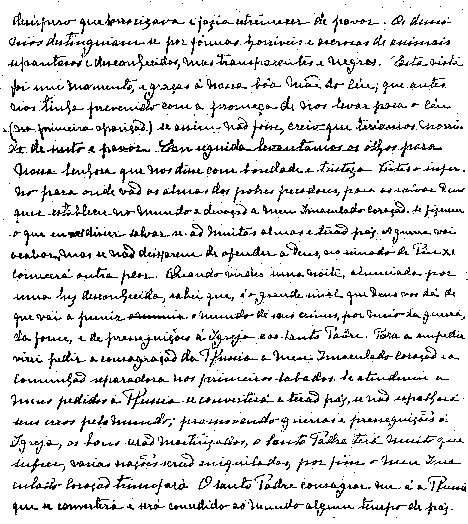 desespero que horrorizava e fazia estremecer de pavor. Os demo-
nios destinguiam-se por formas horriveis e ascrosas de animais
espantosos e desconhecidos, mas transparentes e negros. Esta vista
foi um momento, e graças à nossa bôa Mãe do Céu; que antes
nos tinha prevenido com a promeça de nos levar para o Céu
(na primeira aparição) se assim não fosse, creio que teriamos morri-
do de susto e pavor. Em seguida, levantámos os olhos para
Nossa Senhora que nos disse com bondade e tristeza: Vistes o infer-
no, para onde vão as almas dos pobres pecadores, para as salvar, Deus
quer establecer no mundo a devoção a meu Imaculado Coração. se fizerem
o que eu disser salvar-se-ão muitas almas e terão paz. A guerra vai
acabar, mas se não deixarem de ofender a Deus, no reinado de Pio XI
comecará outra peor. Quando virdes uma noite, alumiada por
uma luz desconhecida, sabei que é o grande sinal que Deus vos dá de
que vai a punir o mundo de seus crimes, por meio da guerra,
da fome e de perseguições à Igreja e ao Santo Padre. Para a impedir
virei pedir a consagração da Russia a meu Imaculado Coração e a
comunhão reparadora nos primeiros sabados. Se atenderem a
meus pedidos a Russia se converterá e terão paz, se não espalhará
seus erros pelo mundo, promovendo guerras e perseguições à
Igreja, os bons serão martirizados, o Santo Padre terá muito que
sufrer, varias nações serão aniquiladas, por fim o meu Ima-
culado Coração triunfará. O Santo Padre consagrar-me-á a Russia
que se converterá e será consedido ao mundo algum tempo de paz.